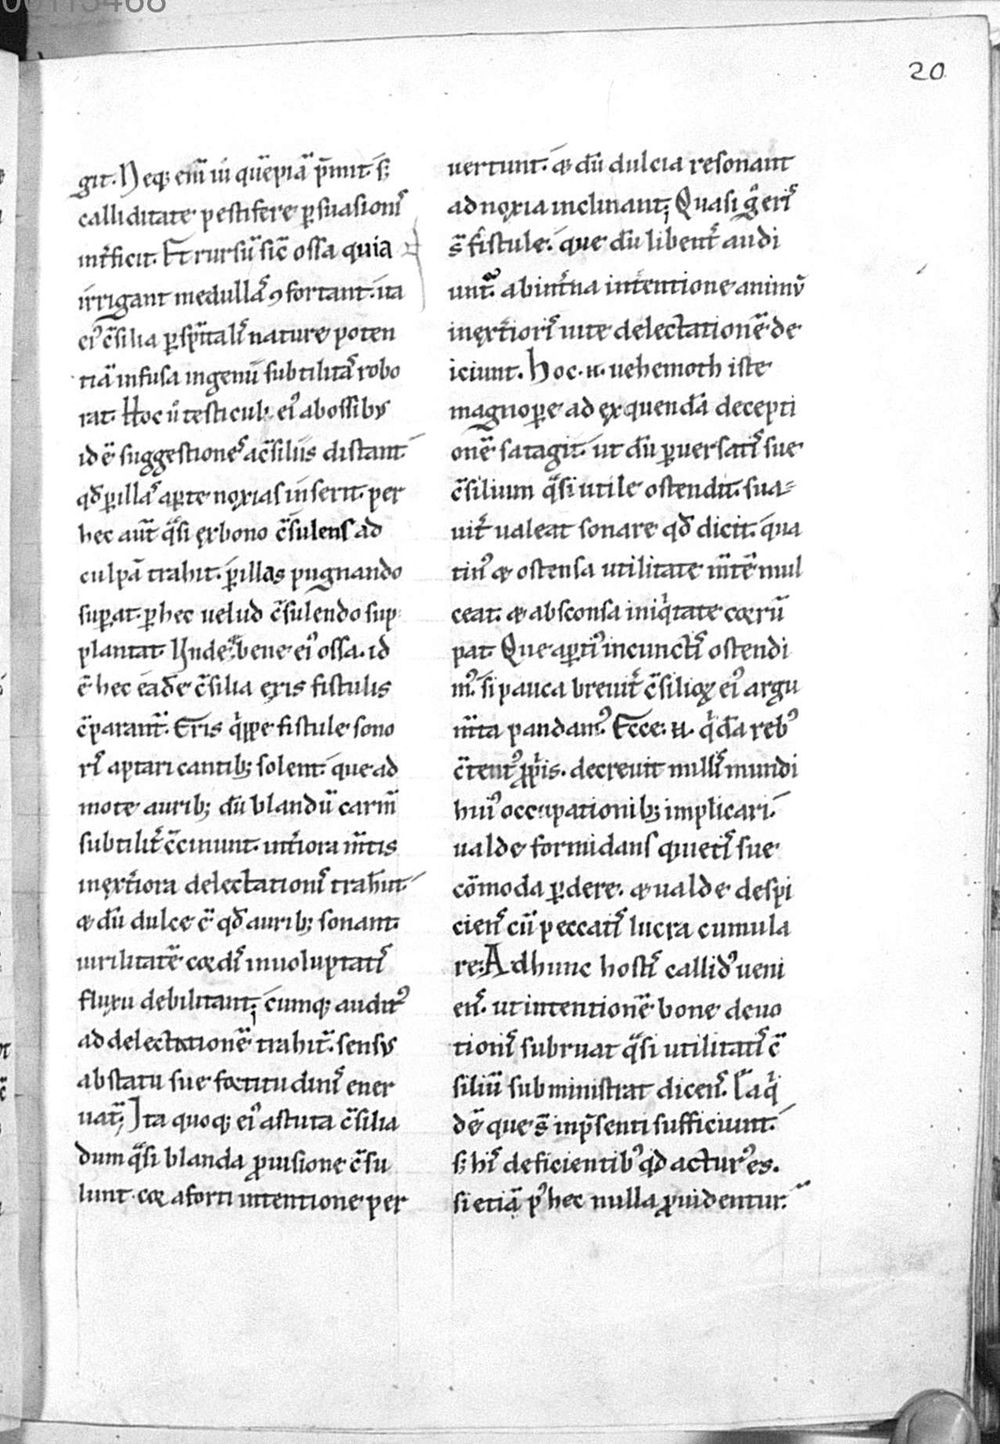 00115468
20
git. Neq; eni᷒ ui quēpiā p̄mit. s;
calliditate pestifere p̱suasioni᷒
int̄ficit. Et rursū sic̄ ossa quia
irrigant medulla᷒ ꝯfortant. ita
ei᷒ c̄silia ꝑ sp̄itali᷒ nature poten
tiā infusa ingeniū subtilita᷒ robo
rat. Hoc ū testicul; ei᷒ ab ossibus
id ē suggestione᷒ a c̄siliis distant.
qđ ꝑ illa᷒ aꝑte noxias inserit. per
hec aut̄ q̄si ex bono c̄sulens ad
culpā trahit. ꝑ illas pugnando
suꝑat. ꝑ hec uelud c̄sulendo sup
plantat. Unde & bene ei᷒ ossa. id
ē hec eadē c̄silia eris fistulis
c̄parant᷒. Eris q̄ppe fistule sono
ri᷒ aptari cantib; solent. que ad
mote aurib; dū blandū carm̄
subtilit̄ c̄cinunt. int̄iora m̄tis
in ext̄iora delectationi᷒ trahūt.
& dū dulce ē qđ aurib; sonant.
uirilitatē cordi᷒ in uoluptati᷒
fluxu debilitant; cumq; audit᷒
ad delectationē trahit᷒. sensus
ab statu sue fortitudini᷒ ener
uat᷒; Ita quoq; ei᷒ astuta c̄silia
dum q̄si blanda ꝓuisione c̄su
lunt. cor a forti intentione per
uertunt. & dū dulcia resonant
ad noxia inclinant; Quasi g̊ eri᷒
s̄ fistule. que dū libent̄ audi
unt᷒. ab int̄na intentione animū
in ext̄iori᷒ uite delectationē de
iciunt. Hoc .n. uehemoth iste
magnoꝑe ad exquendā decepti
onē satagit. ut dū ꝑuersati᷒ sue
c̄silium q̄si utile ostendit. sua
uit̄ ualeat sonare qđ dicit. q̄ua
tin᷒ & ostensa utilitate m̄tē mul
ceat. & absconsa iniq̄tate cor rū
pat. Que aꝑti᷒ in cuncti᷒ ostendi
m᷒. si pauca breuit̄ c̄silioꝝ ei᷒ argu
m̄ta pandam᷒. Ecce .n. q̄dā reb᷒
c̄tent᷒ ꝓpriis. decreuit nulli᷒ mundi
hui᷒ occupationib; implicari.
ualde formidans quieti᷒ sue
cōmoda ꝑdere. & ualde despi
cien᷒ cū peccati᷒ lucra cumula
re. Ad hunc hosti᷒ callid᷒ ueni
en᷒. ut intentionē bone deuo
tioni᷒ subruat q̄si utilitati᷒ c̄
siliū subministrat dicen᷒. Ea q̄
dē que s̄ in p̄senti sufficiunt.
s; hi᷒ deficientib᷒ qđ actur᷒ es.
si etiā p᷒ hec nulla ꝓuidentur.